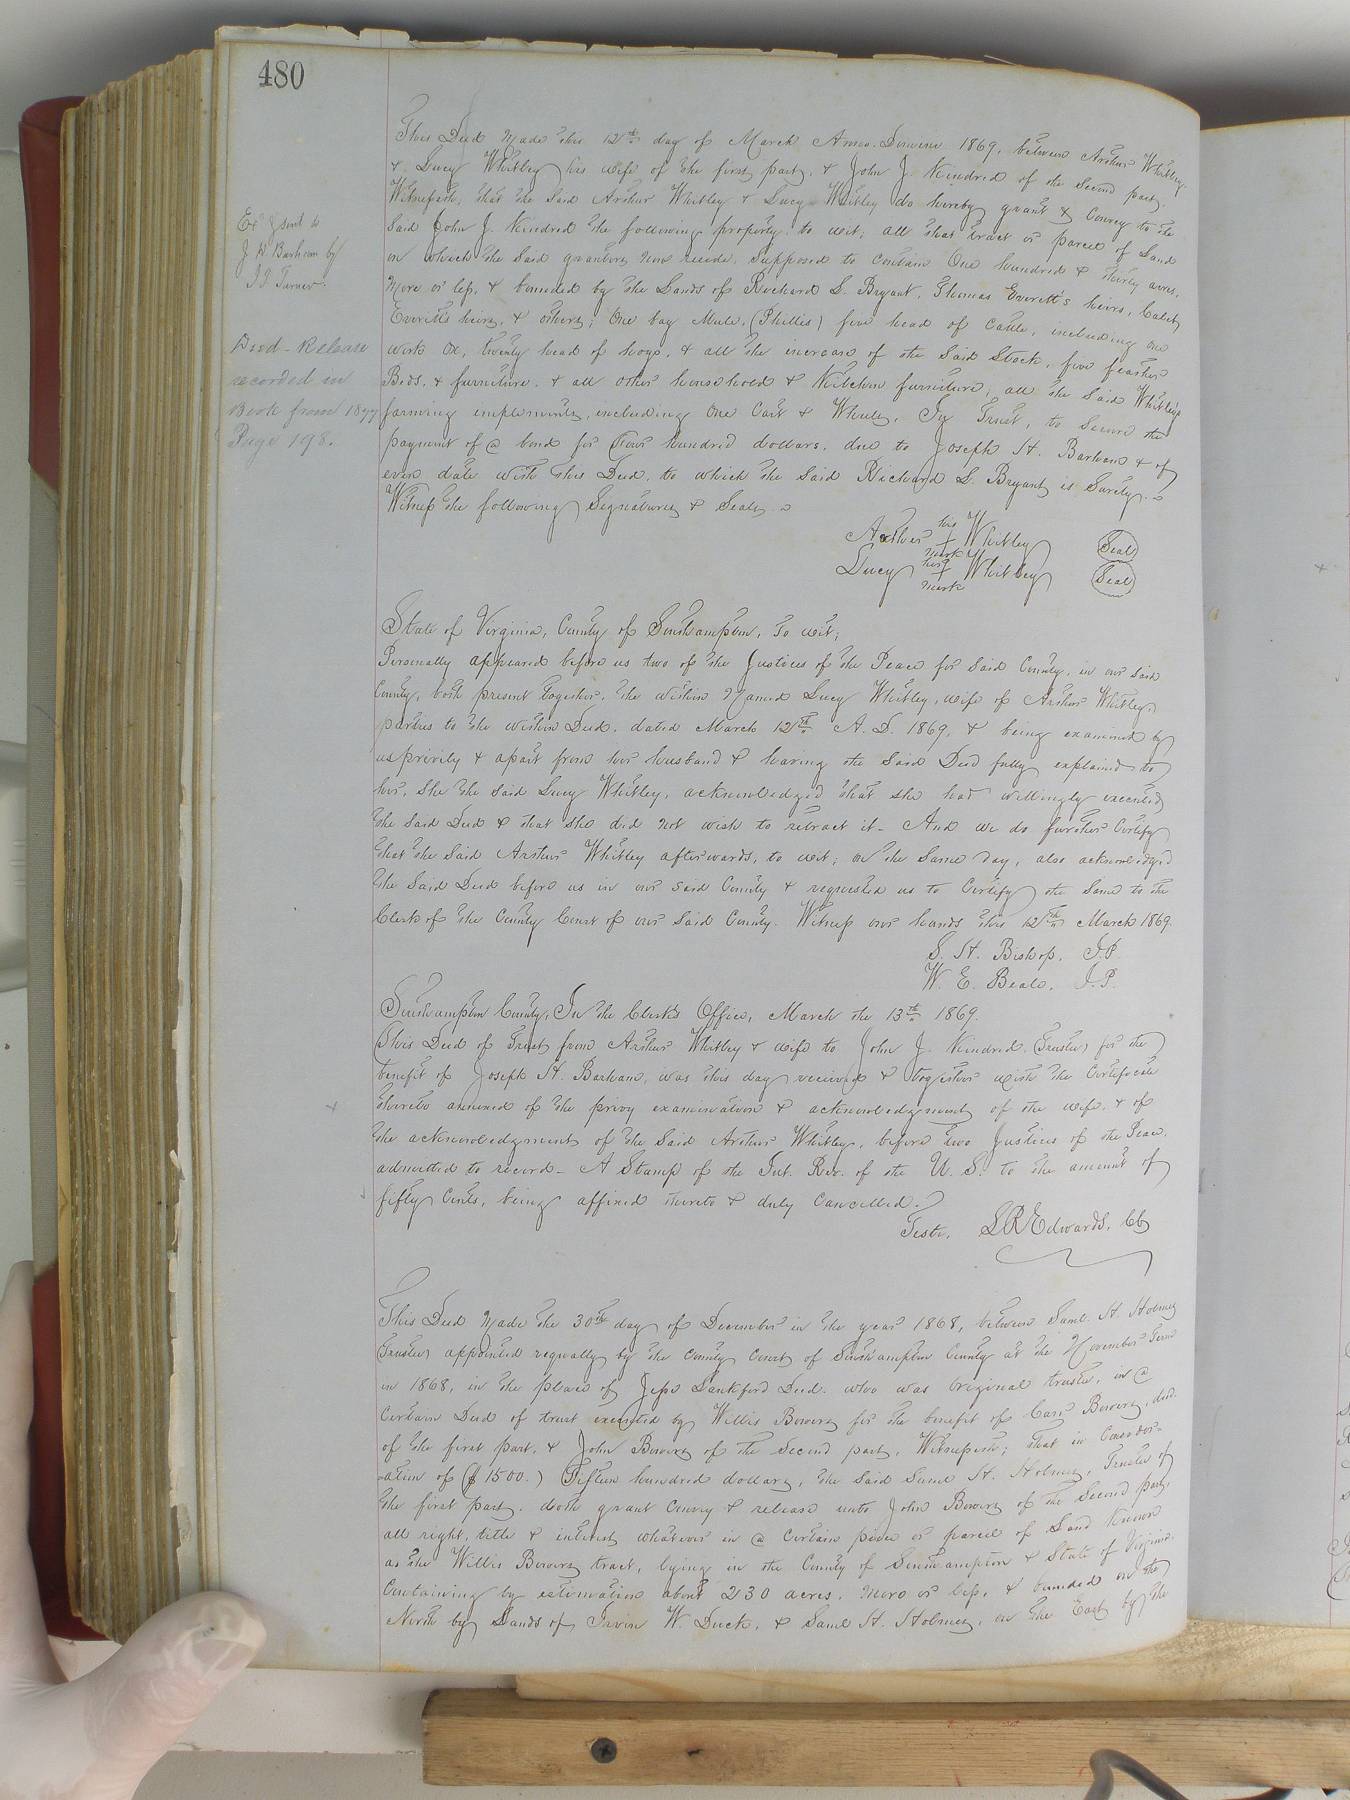 480
This Deed Made this 12th day of March Anno. Domini 1869, between Arthur Whitley
& Lucy Whitley his wife of the first part, & John J. Kindred of the second part.
Witnesseth, that the said Arthur Whitley & Lucy Whitley do hereby grant & Convey to the
said John J. Kindred the following property, to wit; all that tract or parcel of Land
on which the said grantors now reside, supposed to contain One hundred & thirty acres,
More or less, & bounded by the Lands of Richard S. Bryant, Thomas Everett's heirs, Caleb
Everett's heirs, & others; One bay Mule, (Phillis) five head of Cattle, including one
work Ox, twenty head of hogs, & all the increase of the said Stock, five feather
Beds, & furniture, & all other household & Kitchen furniture, all the said Whitley's
farming implements, including One Cart & Wheels, In Trust, to secure the
payment of @ bond for Four hundred dollars, due to Joseph H. Barham & of
even date with this Deed, to which the said Richard S. Bryant, is Surety.
Witness the following Signatures & Seals.
Arthur his + mark Whitley (Seal)
Lucy her + mark Whitley (Seal)
Ex'd & sent to
J H Barham by
Deed - Release
recorded in
Book from 1877
Page 198.
State of Virginia, County of Southampton, To wit;
Personally appeared before us two of the Justices of the Peace for said County, in our said
County, both present together, the within Named Lucy Whitley, wife of Arthur Whitley,
parties to the within Deed, dated March 12th A. D. 1869, & being examined by
us privily & apart from her husband & having the said Deed fully explained to
her, she the said Lucy Whitley, acknowledged that she had willingly executed
the said Deed & that she did not wish to retract it - And we do further Certify
that the said Arthur Whitley afterwards, to wit; on the same day, also acknowledged
the said Deed before us in our said County & requested us to Certify the same to the
Clerk of the County Court of our said County. Witness our hands this 12th March 1869.
S. H. Bishop, J.P.
W. E. Beale, J.P.
Southampton County, In the Clerk's Office, March the 13th 1869.
This Deed of Trust from Arthur Whitley & wife to John J. Kindred (Trustee) for the
benefit of Joseph H. Barham, was this day received & together with the Certificate
thereto annexed of the privy examination & acknowledgment of the wife, & of
the acknowledgment of the said Arthur Whitley, before two Justices of the Peace,
admitted to record - A Stamp of the Int. Rev. of the U. S. to the amount of
fifty Cents, being affixed thereto & duly Cancelled.
Teste, L R Edwards, CC
This Deed Made the 30th day of December in the year 1868, between Saml. H. Holmes
(Trustee) appointed regually by the County Court of Southampton County at the November Term
in 1868, in the place of Jesse Lankford Decd. who was Original trustee, in @
Certain Deed of trust executed by Willis Bowers for the benefit of Carr Bowers, decd.
of the first part, & John Bowers of the second part, Witnesseth; that in Consider-
-ation of ($ 1500.) Fifteen hundred dollars, the said Saml H. Holmes, Trustee of
the first part, doth grant Convey & release unto John Bowers of the second part,
all right, title & interest whatever in @ Certain piece or parcel of Land Known
as the Willis Bowers tract, lying in the County of Southampton & State of Virginia.
Containing by estimation about 230 acres, more or less, & bounded on the
North by Lands of Irvin W. Duck, & Saml H. Holmes, on the East by the